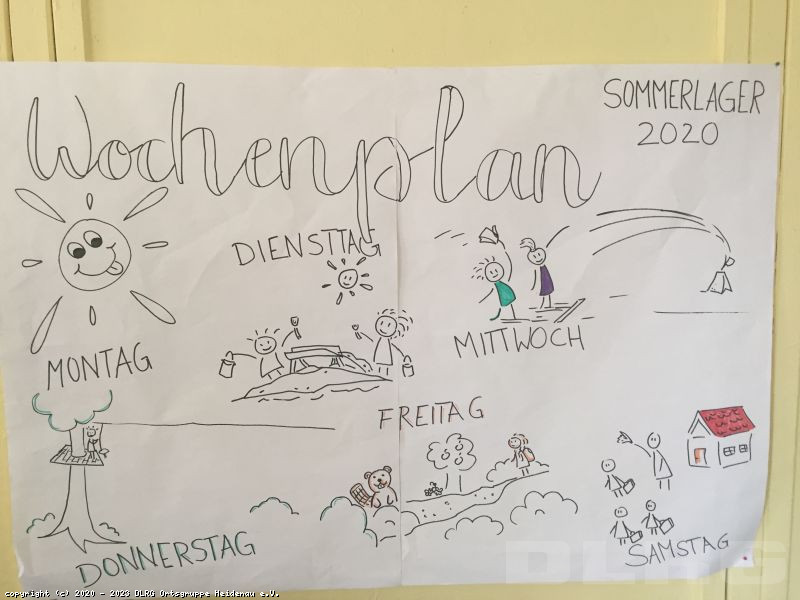 Wochenplan
SOMMERLAGER
2020
MONTAG
DIENSTTAG
MITTWOCH
DONNERSTAG
FREITAG
SAMSTAG
DLRG
copyright (c) 2020 - 2023 DLRG Ortsgruppe Heidenau e.V.